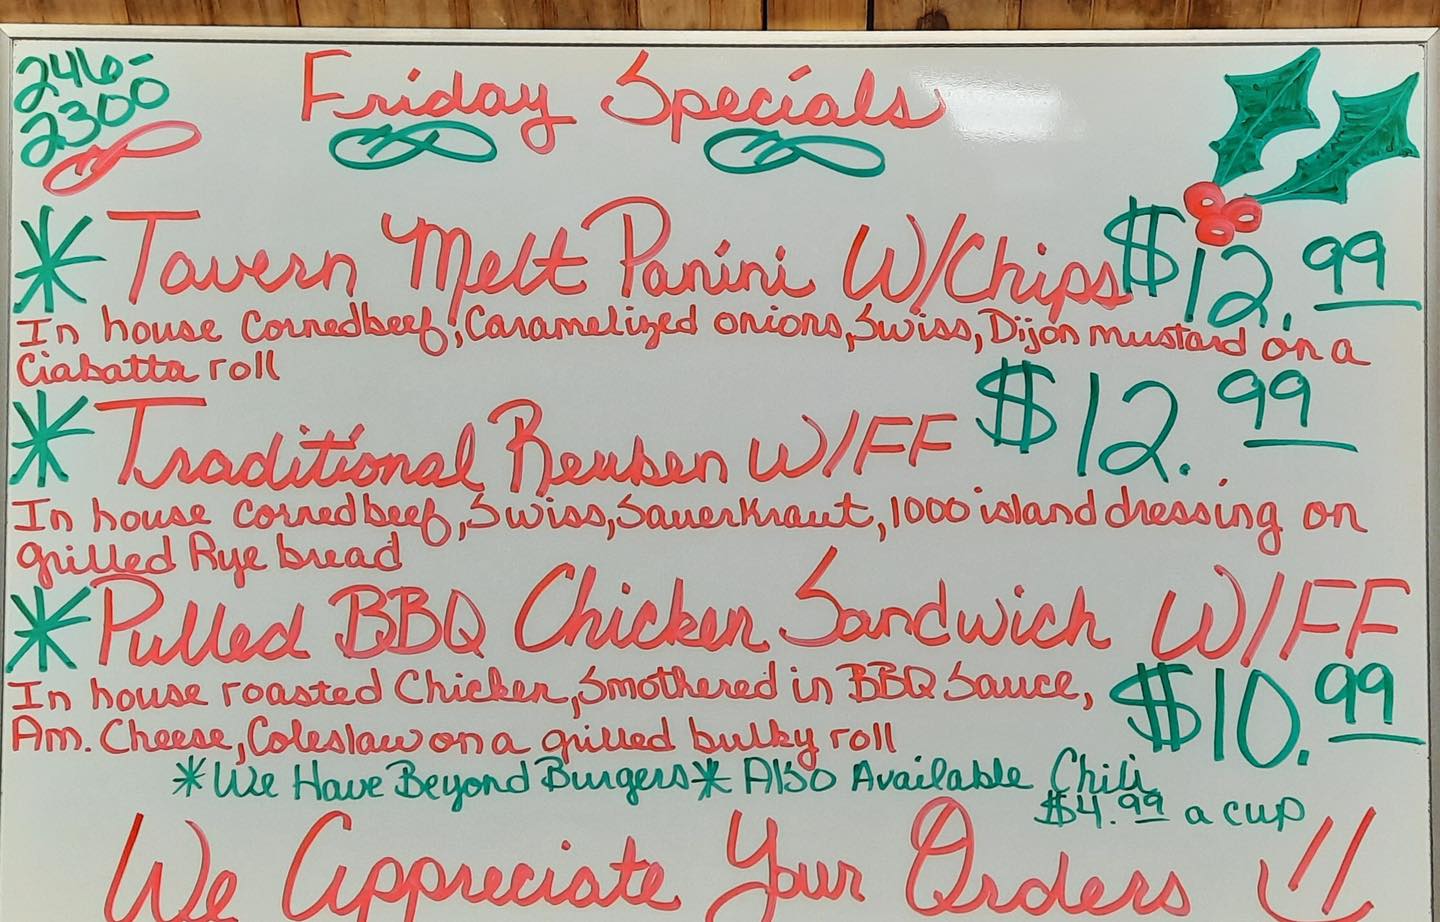 246-
2300
Friday Specials
Tavern Melt Panini W/Chips $12.99
In house Cornedbeef, Caramelized onions, Swiss, Dijon mustard on a
Ciabatta roll
Traditional Reuben W/FF $12.99
In house cornedbeef, Swiss, Sauerkraut, 1000 island dressing on
grilled Rye bread
Pulled BBQ Chicken Sandwich W/FF
In house roasted Chicken, Smothered in BBQ Sauce, $10.99
Am. Cheese, Coleslaw on a grilled bulky roll
*We Have Beyond Burgers* Also Available Chili
$4.99 a cup
We Appreciate Your Orders